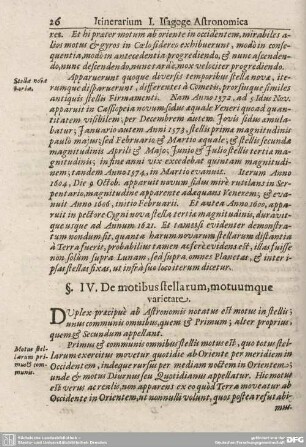 26 Itinerarium I. Isagoge Astronomica
res. Et hi præter motum ab oriente in occidentem, mirabiles a-
lios motus & gyros in Cœlo sidereo exhibuerunt, modò in conse-
quentia, modò in antecedentia progrediendo, & nunc ascenden-
do, nunc descendendo, nunc tardè, mox velociter progrediendo.
Stellæ novæ
variæ.
Apparuerunt quoque diversis temporibus stellæ novæ, ite-
rumque disparuerunt, differentes à Cometis, prorsusque similes
antiquis stellis Firmamenti. Nam Anno 1572, ad 5 Idus Nov.
apparuit in Cassiopeia novum sidus æquale Veneri quoad quan-
titatem visibilem; per Decembrem autem Jovis sidus æmula-
batur; Januario autem Anni 1573, stellis primæ magnitudinis
paulò majus; sed Februario & Martio æquale; & stellis secundæ
magnitudinis Aprili & Majo; Junio & Julio stellis tertiæ ma-
gnitudinis; in fine anni vix excedebat quintam magnitudi-
nem; tandem Anno 1574, in Martio evanuit. Iterum Anno
1604, Die 9 Octob. apparuit novum sidus mirè rutilans in Ser-
pentario, magnitudine apparente adæquans Venerem; & eva-
nuit Anno 1606, initio Februarii. Et autea Anno 1600, appa-
ruit in pectore Cygni nova stella tertiæ magnitudinis, duravit-
que usque ad Annum 1621. Et tametsi evidenter demonstra-
tum nondum sit, quanta harum novarum stellarum distantia
à Terra fuerit, probabilius tamen asserè evidens est, illas fuisse
non solùm supra Lunam, sed supra omnes Planetas, & inter i-
psas stellas fixas, ut infrà suo loco iterum dicetur.
§. IV. De motibus stellarum, motuumque
varietate.
Motus stel-
larum pri-
mus &
communis.
Duplex præcipuè ab Astronomis notatus est motus in stellis;
unus communis omnibus, quem & Primum; alter proprius,
quem & Secundum appellant.
Primus & communis omnibus stellis motus est, quo totus stel-
larum exercitus movetur quotidie ab Oriente per meridiem in
Occidentem, indeque rursus per mediam noctem in Orientem:
unde & motus Diurnus seu Quotidianus appellatur. Hic motus
est verus ac realis, non apparens ex eo quòd Terra moveatur ab
Occidente in Orientem, ut nonnulli volunt, quos postea refutabi-
mus.